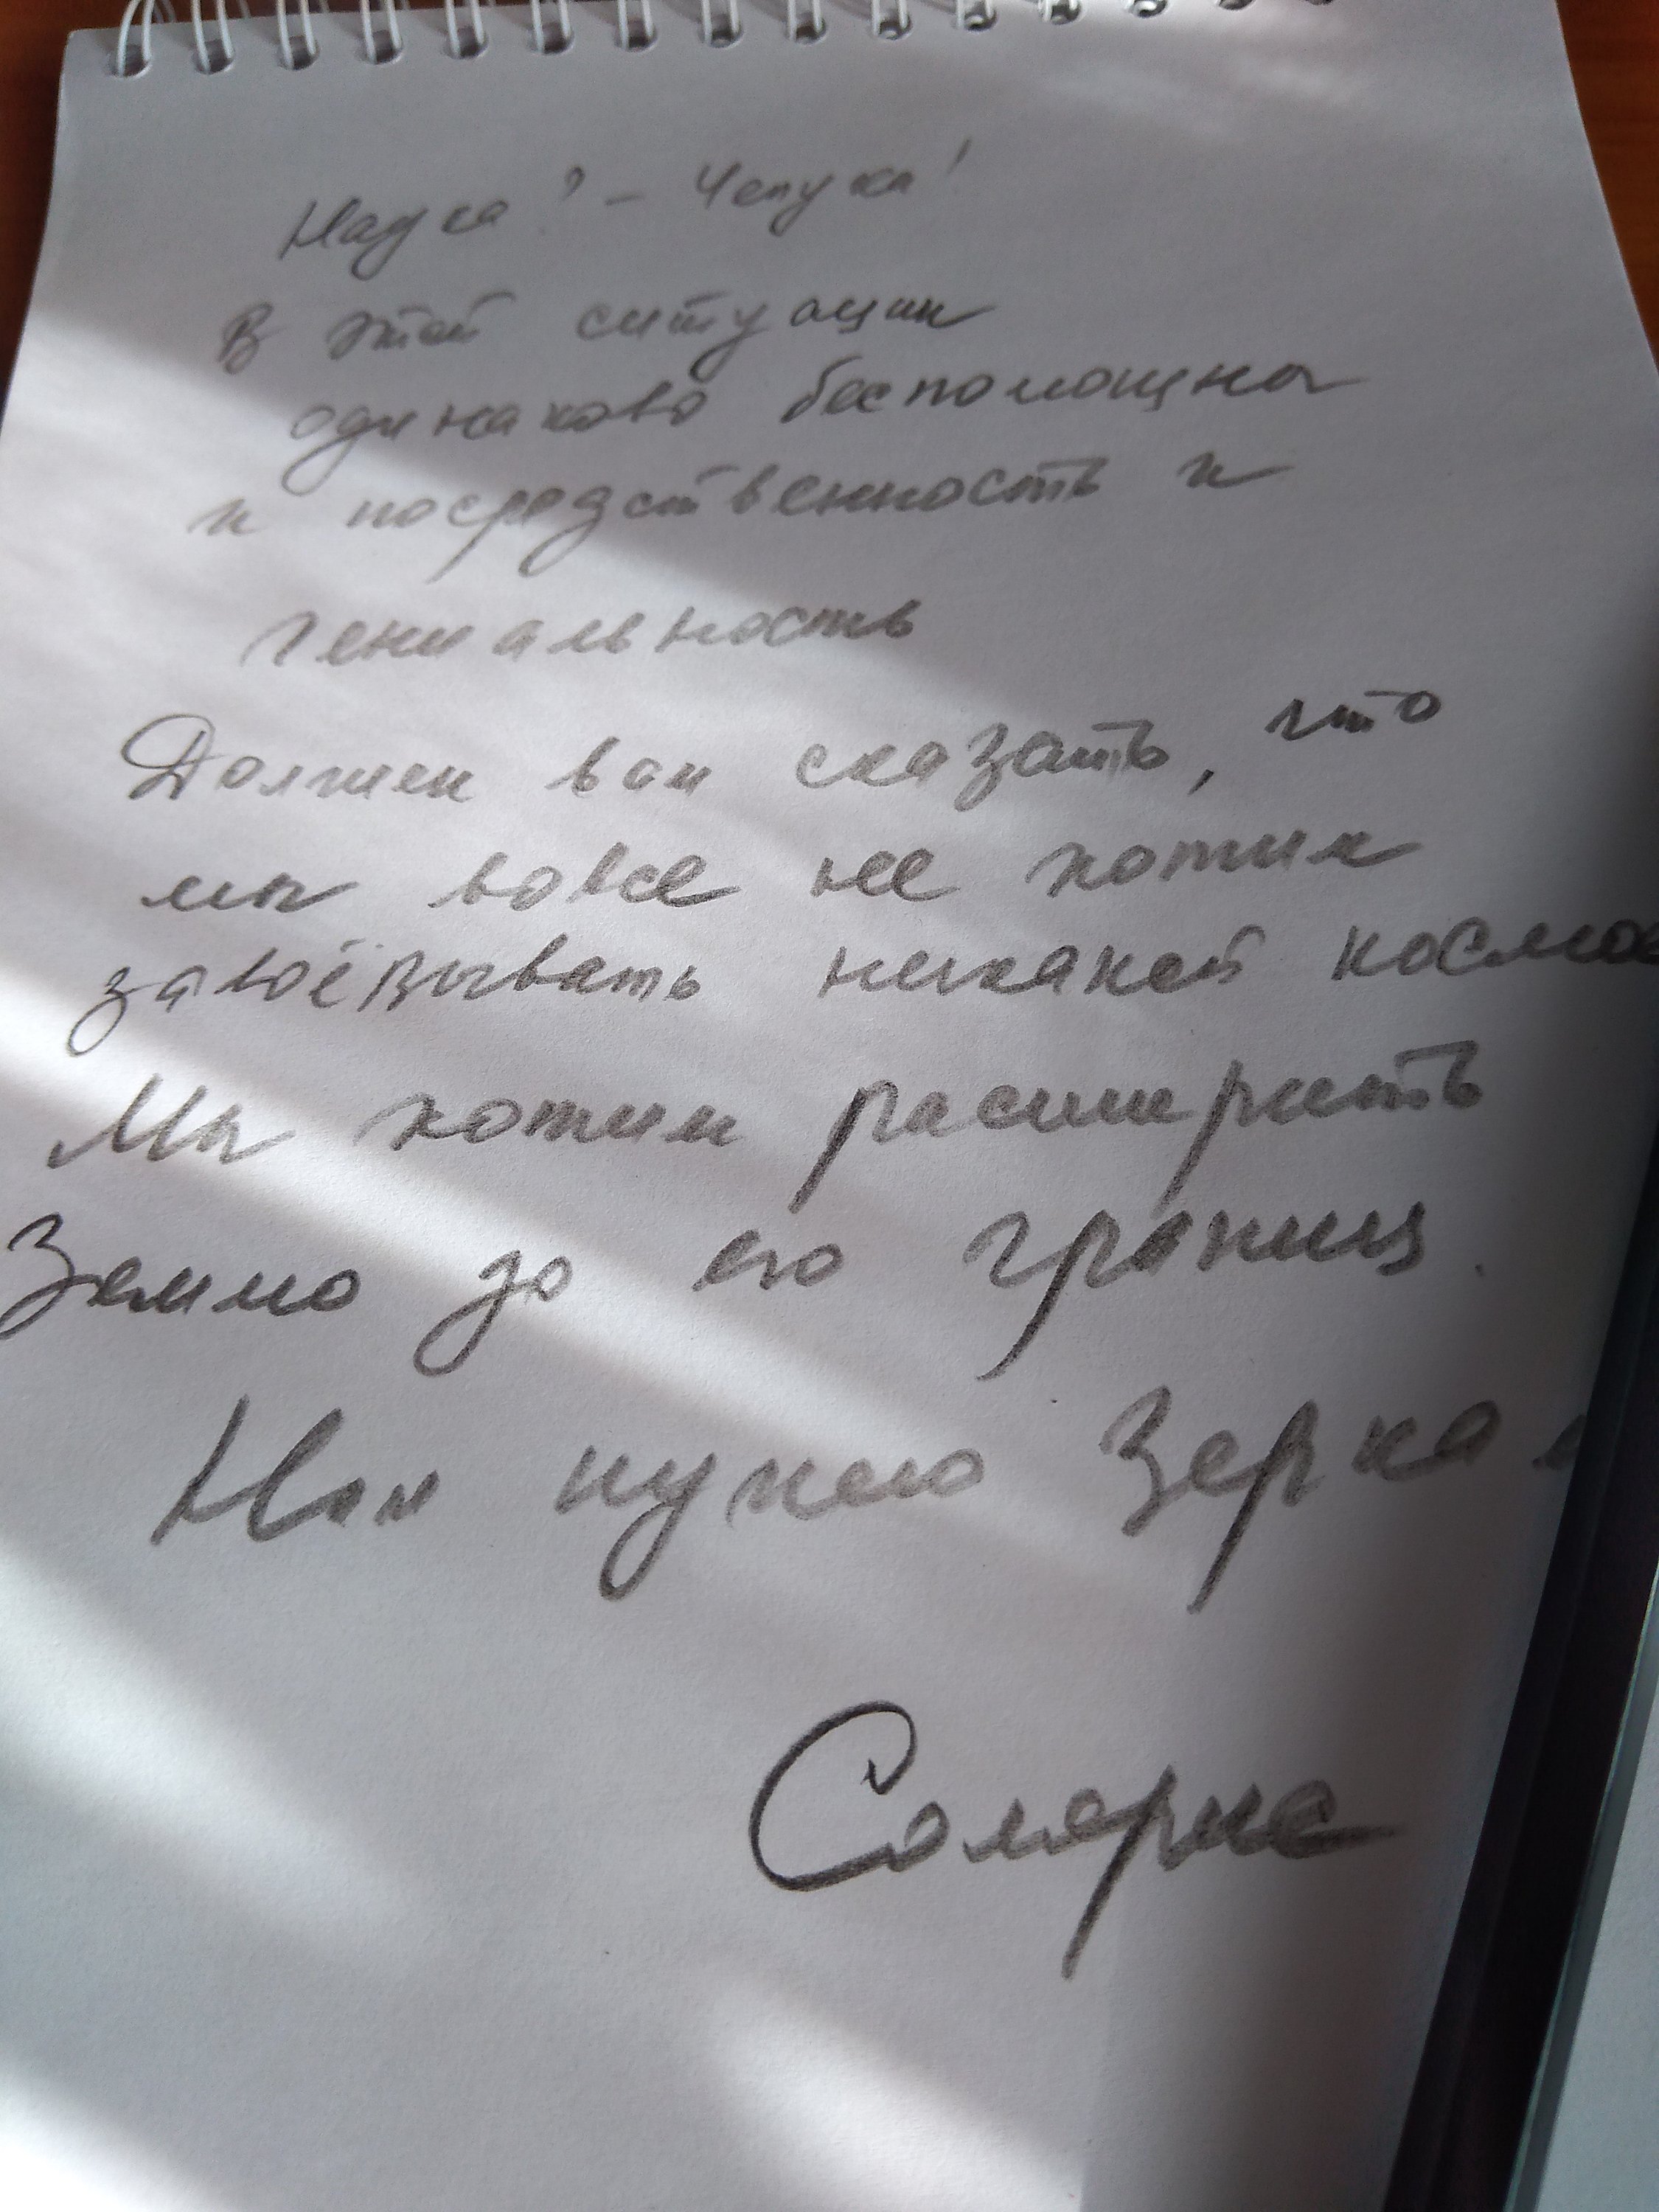 Наука? – Чепуха!
В этой ситуации
одинаково беспомощны
и посредственность и
гениальность
Должен вам сказать, что
мы вовсе не хотим
завоёвывать никакой космос
Мы хотим расширить
Землю до его границ.
Нам нужно зеркал
Солярис